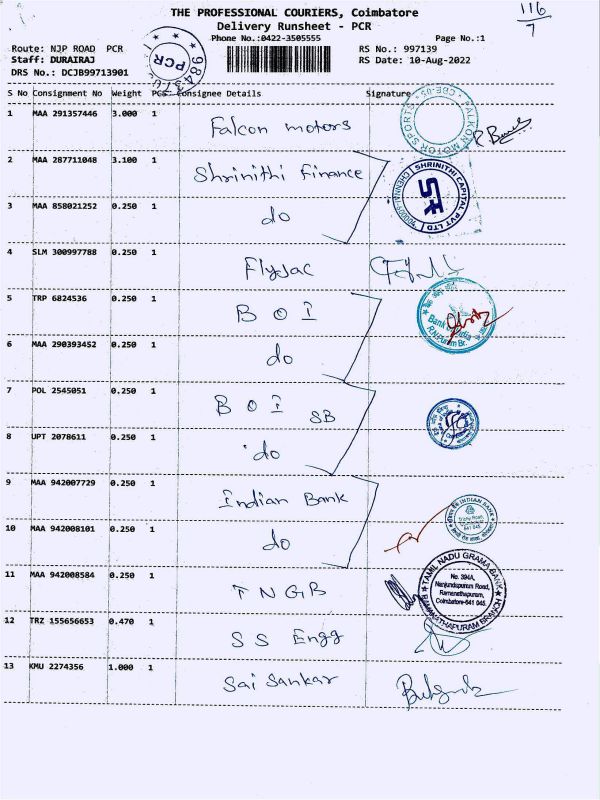 THE PROFESSIONAL COURIERS, Coimbatore
116/7
Delivery Runsheet - PCR
Phone No.:0422-3505555
Page No.:1
Route: NJP ROAD PCR
RS No.: 997139
Staff: DURAIRAJ
RS Date: 10-Aug-2022
DRS No.: DCJB99713901
PCR
S No Consignment No Weight PCS Consignee Details Signature
1 MAA 291357446 3.000 1 Falcon motors
FALKON MOTOR SPORTS * CBE-05
2 MAA 287711048 3.100 1 Shrinithi Finance
SHRINITHI CAPITAL PVT LTD
3 MAA 858021252 0.250 1 do
4 SLM 300997788 0.250 1 Flyjac
5 TRP 6824536 0.250 1 B O I
R.N.Puram Br.
6 MAA 290393452 0.250 1 do
7 POL 2545051 0.250 1 B O I SB
8 UPT 2078611 0.250 1 do
9 MAA 942007729 0.250 1 Indian Bank
INDIAN BANK
10 MAA 942008101 0.250 1 do
11 MAA 942008584 0.250 1 T N G B
TAMIL NADU GRAMA BANK
No. 394A,
Nanjundapuram Road,
Ramanathapuram,
Coimbatore-641 045.
RAMANATHAPURAM BRANCH
12 TRZ 155656653 0.470 1 S S Engg
13 KMU 2274356 1.000 1 Sai Sankar